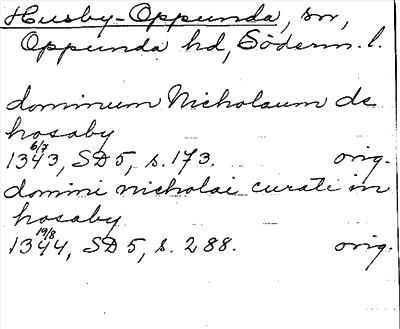 Husby-Oppunda, sn,
Oppunda hd, Söderm. l.
dominum Nicholaum de
hosaby
6/7
1343, SD 5, s. 173. orig.
domini nicholai curati in
hosaby
19/8
1344, SD 5, s. 288. orig.